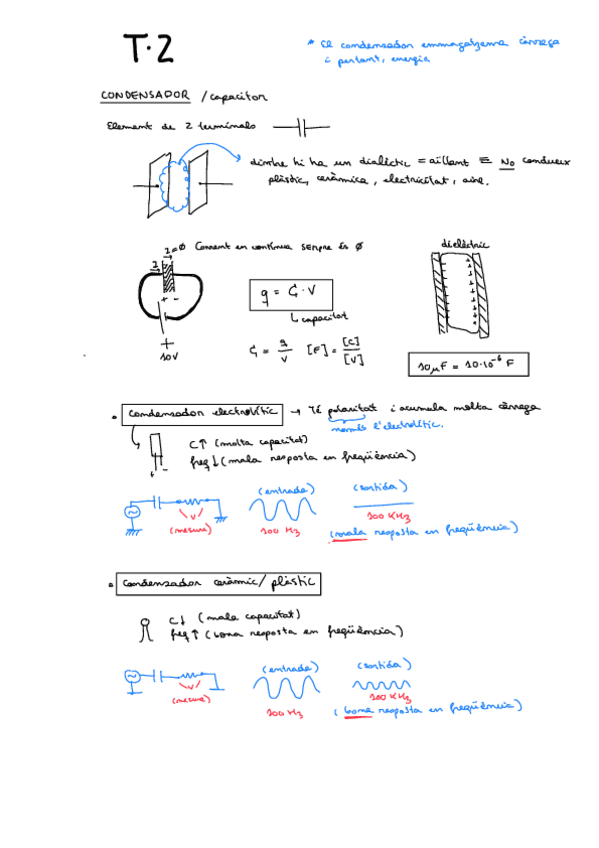 T.2
* El condensador emmagatzema càrrega
i pertant, energia
CONDENSADOR / capacitor
Element de 2 terminals
dintre hi ha un dialèctic = aïllant ≡ No condueix
plàstic, ceràmica, electricitat, aire.
I=Ø Corrent en contínua SEMPRE és Ø
I
+ -
+
10V
q = C · V
capacitat
C = q/V [F] = [C]/[V]
dielèctric
10μF = 10·10⁻⁶ F
• Condensador electrolític → Té polaritat i acumula molta càrrega
només l'electrolític.
C↑ (molta capacitat)
freq↓ (mala resposta en freqüència)
+ -
(entrada) (sortida)
V
(mesura) 100 Hz 100 KHz
(mala resposta en freqüència)
• Condensador ceràmic / plàstic
C↓ (mala capacitat)
freq↑ (bona resposta en freqüència)
(entrada) (sortida)
V
(mesura) 100 Hz 100 KHz
(bona resposta en freqüència)